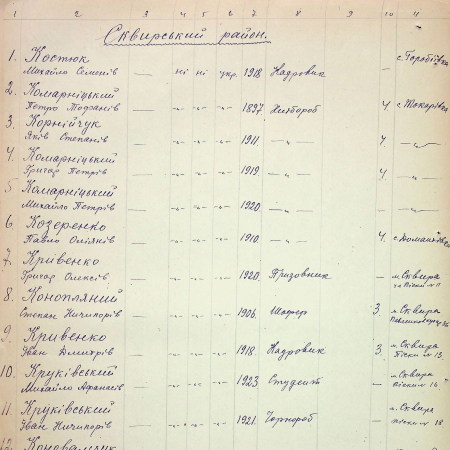 1 2 3 4 5 6 7 8 9 10 11
Сквирський район.
1. Костюк
Михайло Семенів — ні ні укр. 1918. Кадровик — с. Горобіївка
2. Комарніцький
Петро — -"- -"- -"- 1897. Хлібороб 4. с. Токарівка
3. Корнійчук
Яків Степанів — -"- -"- -"- 1911. -"- 4. -"-
4. Комарніцький
Григор Петрів — -"- -"- -"- 1919. — 4. -"-
5 Комарніцький
Михайло Петрів — -"- -"- -"- 1920. — -"-
6. Козеренко
Павло — -"- -"- -"- 1910. -"- 4.
7. Крівенко
Григор Олексів — -"- -"- -"- 1920. Призовник — м. Сквира
8. Конопляний
Степан Ничипорів — -"- -"- -"- 1906. Шофер 3. м. Сквира
9. Кривенко
Іван Дмитрів — -"- -"- -"- 1918. Кадровик 3. м. Сквира
Піски № 13.
10. Круківський
Михайло Афанасів — -"- -"- -"- 1923 Студент — м. Сквира
Піски № 16
11. Круківський
Іван Ничипорів — -"- -"- -"- 1921. Чорнороб — м. Сквира
Піски № 18
12. Коновальчук